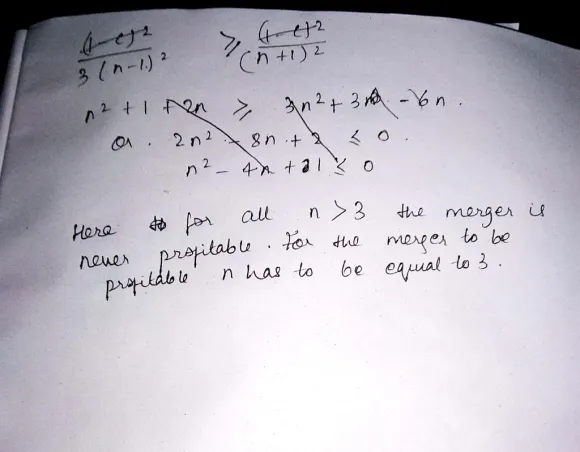 (1-c)^2 / 3(n-1)^2 ≥ (1-c)^2 / (n+1)^2
n² + 1 + 2n ≥ 3n² + 3 - 6n.
Or. 2n² - 8n + 2 ≤ 0
n² - 4n + 1 ≤ 0
Here for all n > 3 the merger is
never profitable. For the merger to be
profitable n has to be equal to 3.